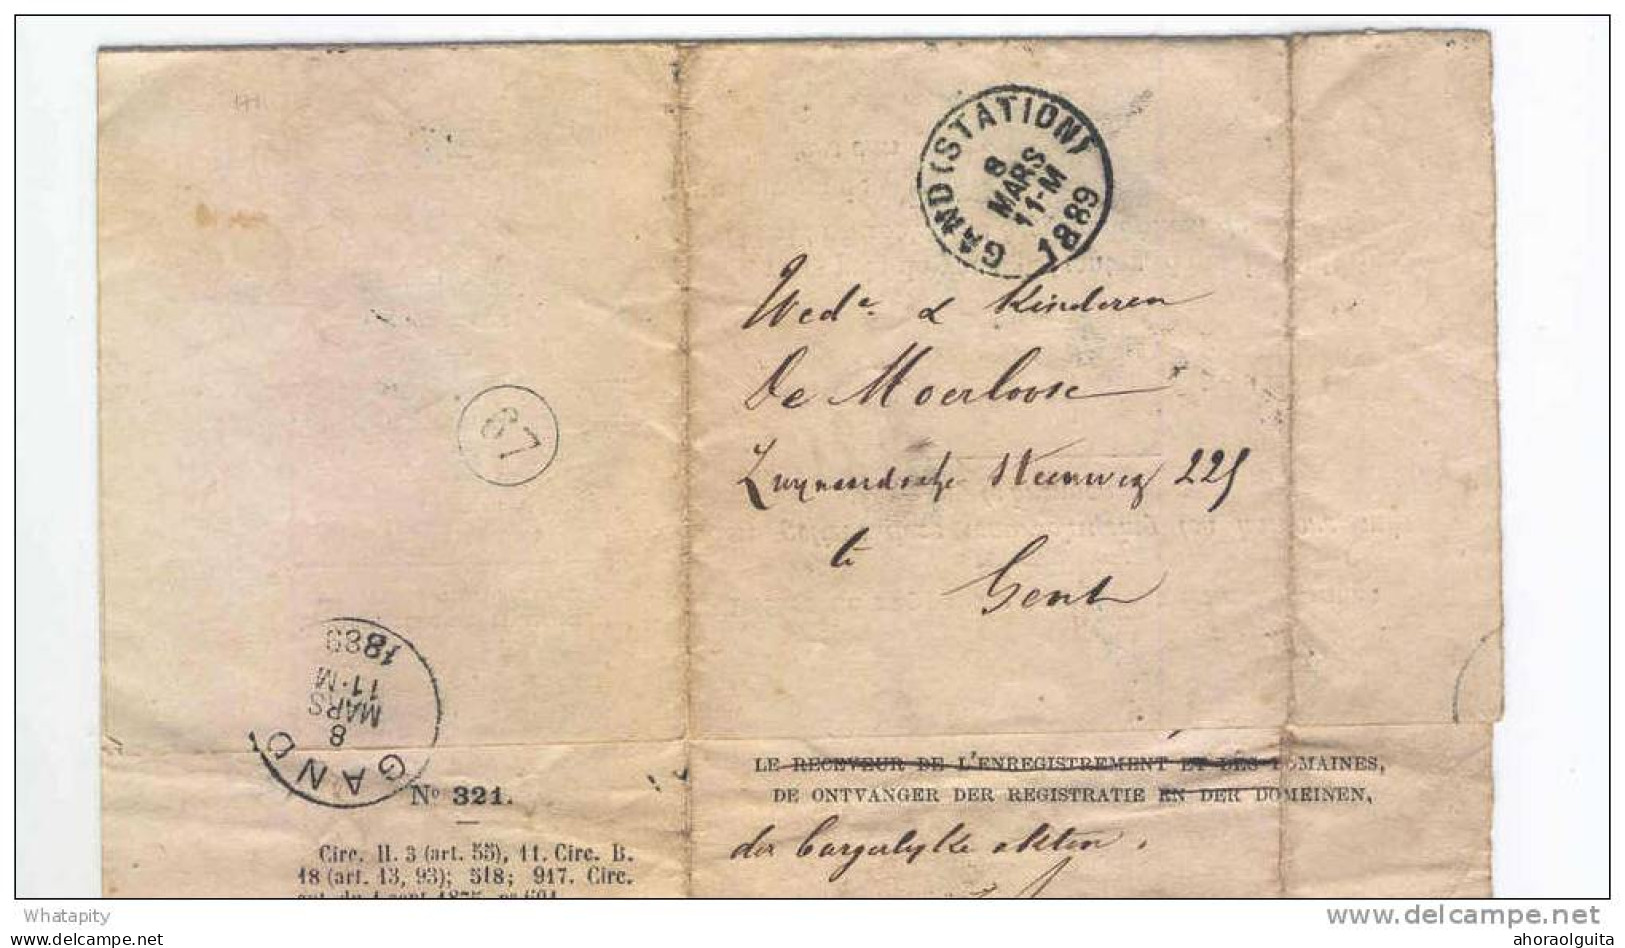 GAND (STATION)
8
MARS
11-M
1889
Wed.e & Kinderen
De Moerloose
Zwynaardsche Steenweg 225
te
Gent
67
1889
11-M
MARS
8
GAND
LE RECEVEUR DE L'ENREGISTREMENT ET DES DOMAINES,
DE ONTVANGER DER REGISTRATIE EN DER DOMEINEN,
der burgerlyke akten.
No 321.
Circ. II. 3 (art. 55), 11. Circ. B.
18 (art. 13, 93); 518; 917. Circ.
Whatapity
delcampe.net
ahoraolguita